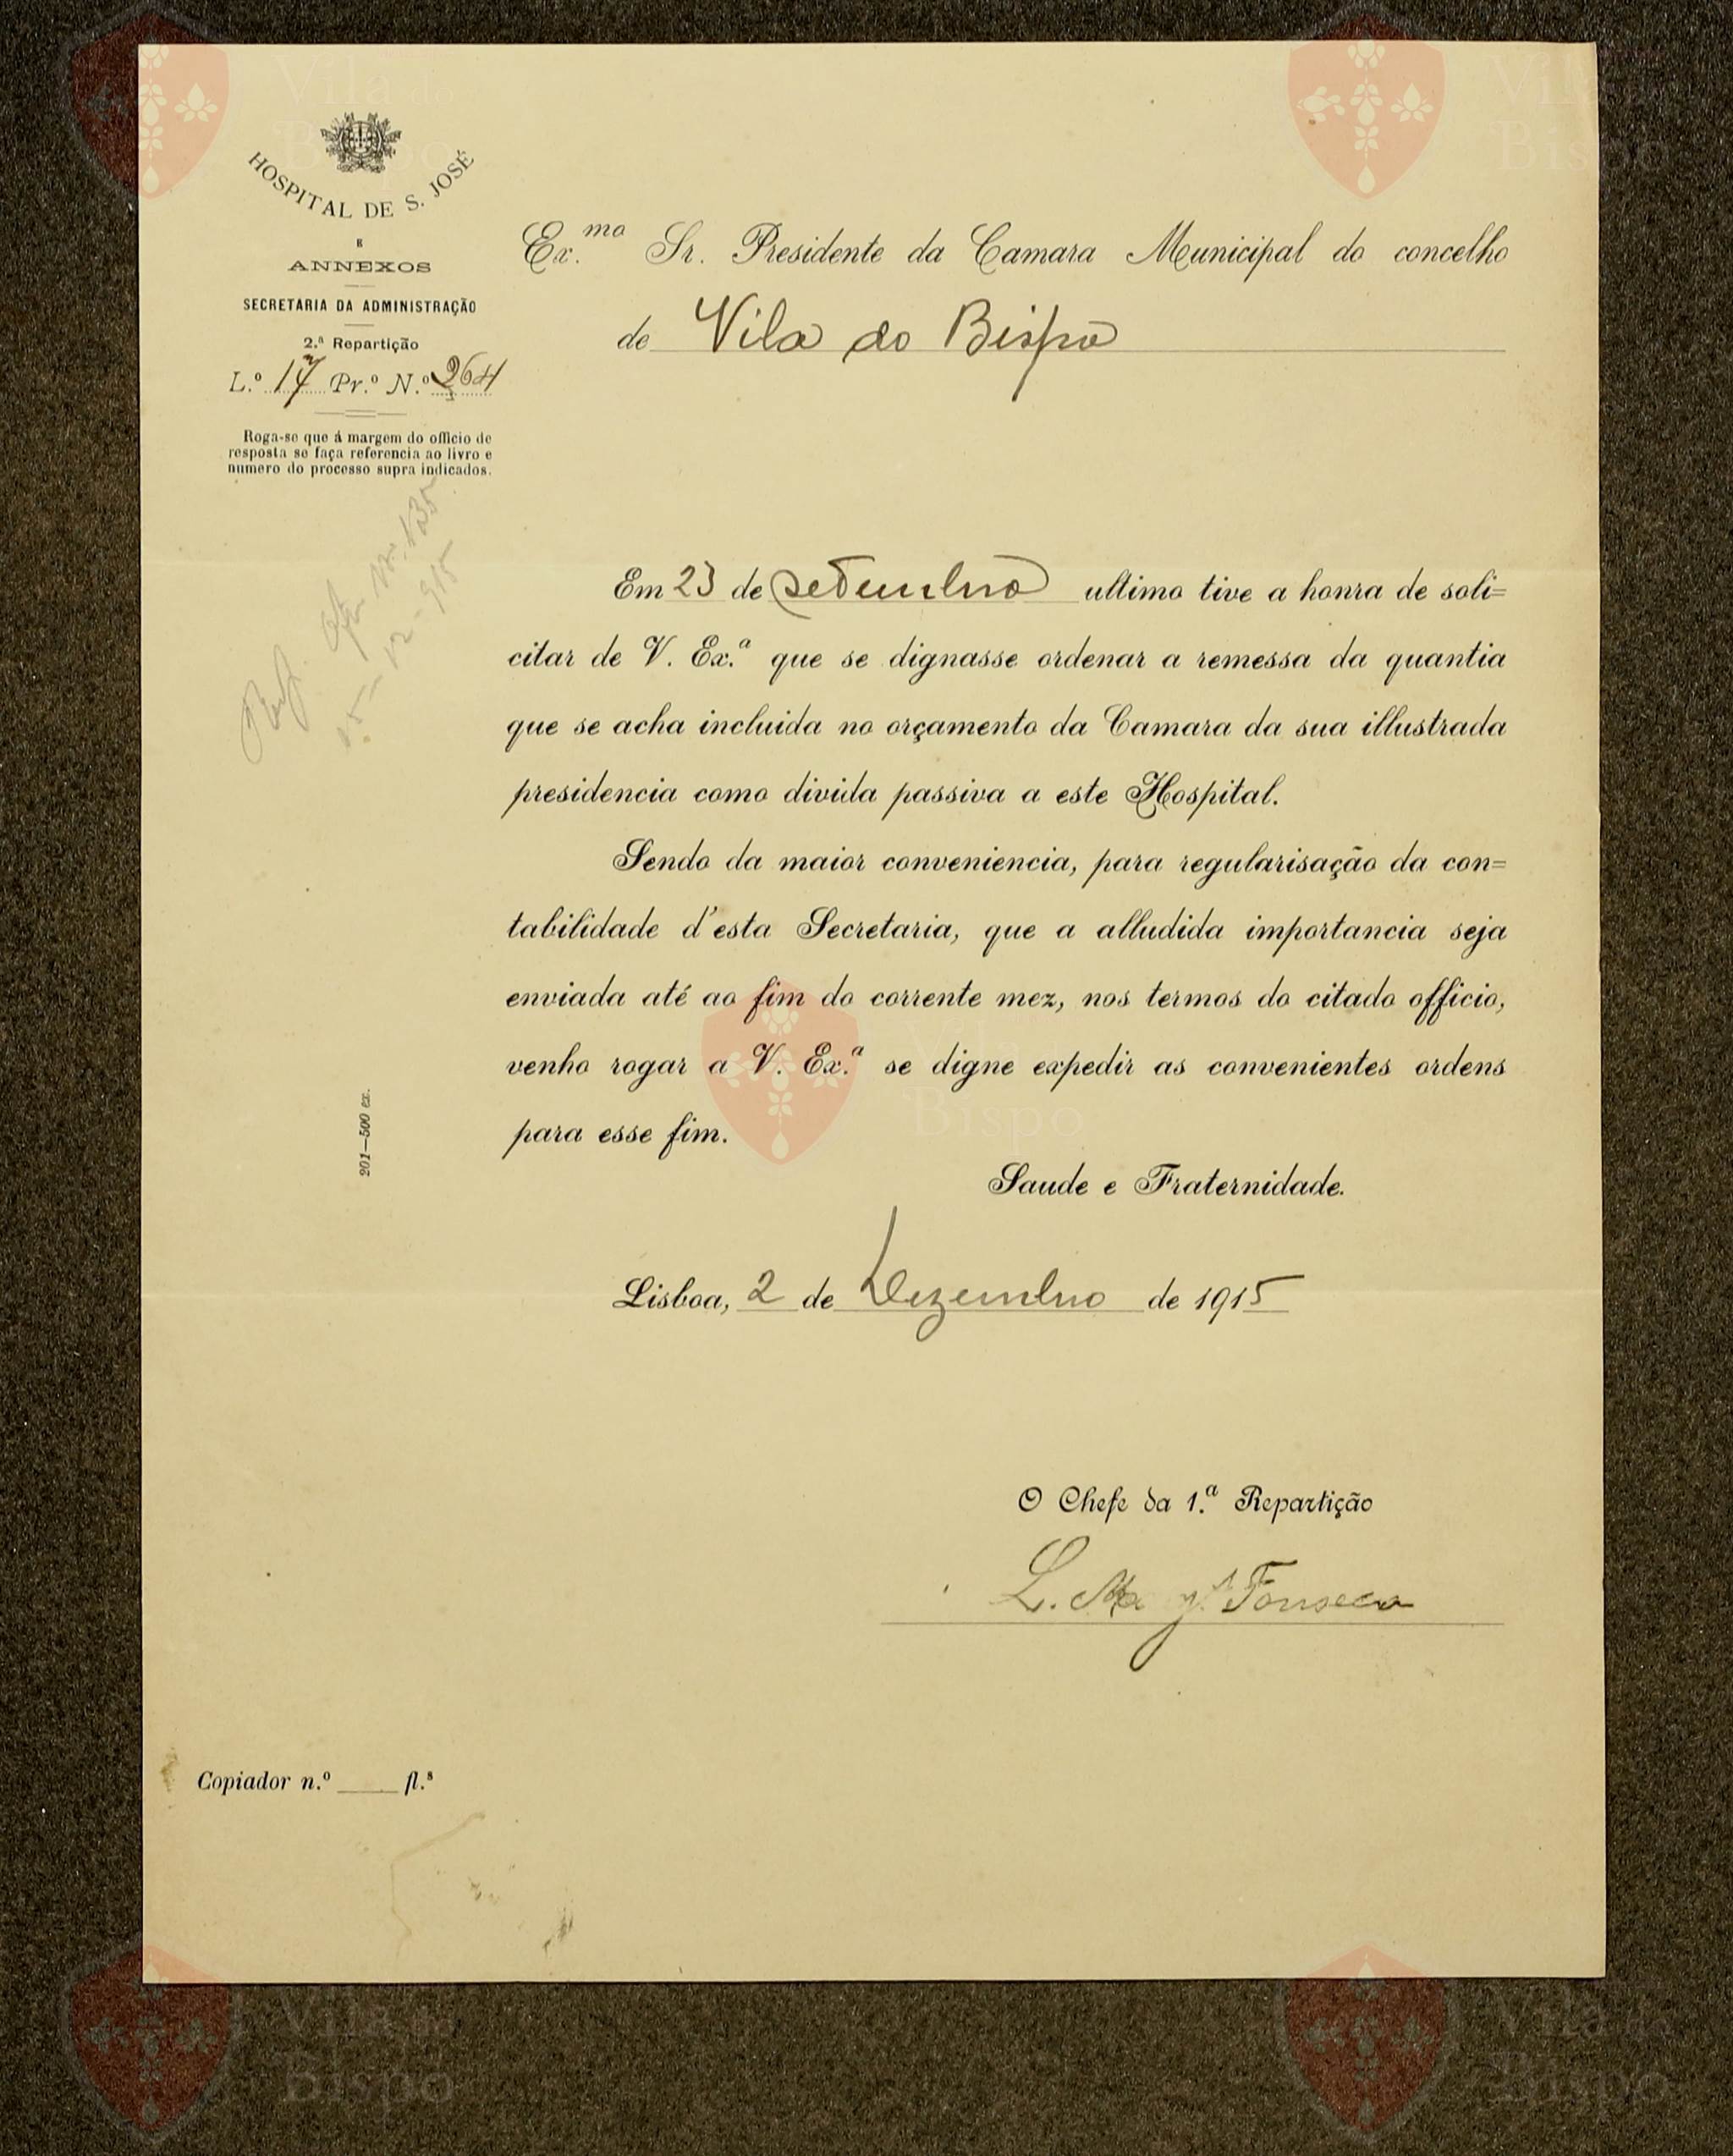 HOSPITAL DE S. JOSÉ
E
ANNEXOS
SECRETARIA DA ADMINISTRAÇÃO
2.ª Repartição
L.º 17 Pr.º N.º 264
Roga-se que á margem do officio de
resposta se faça referencia ao livro e
numero do processo supra indicados.
Ex.mo Sr. Presidente da Camara Municipal do concelho
de Vila do Bispo
Em 23 de Setembro ultimo tive a honra de soli=
citar de V. Ex.ª que se dignasse ordenar a remessa da quantia
que se acha incluida no orçamento da Camara da sua illustrada
presidencia como divida passiva a este Hospital.
Sendo da maior conveniencia, para regularisação da con=
tabilidade d'esta Secretaria, que a alludida importancia seja
enviada até ao fim do corrente mez, nos termos do citado officio,
venho rogar a V. Ex.ª se digne expedir as convenientes ordens
para esse fim.
Saude e Fraternidade.
Lisboa, 2 de Dezembro de 1915
O Chefe da 1.ª Repartição
L. Fonseca
N.º 135
15-12-915
201—500 ex.
Copiador n.º fl.s
Vila do
Bispo
Vila do
Bispo
Vila do
Bispo
Vila do
Bispo
Vila do
Bispo